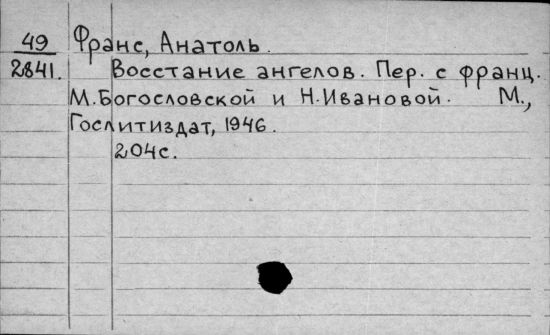 49 Франс, Анатоль.
2841. Восстание ангелов. Пер. с франц.
М. Богословской и Н. Ивановой. М.,
Гослитиздат, 1946.
204с.